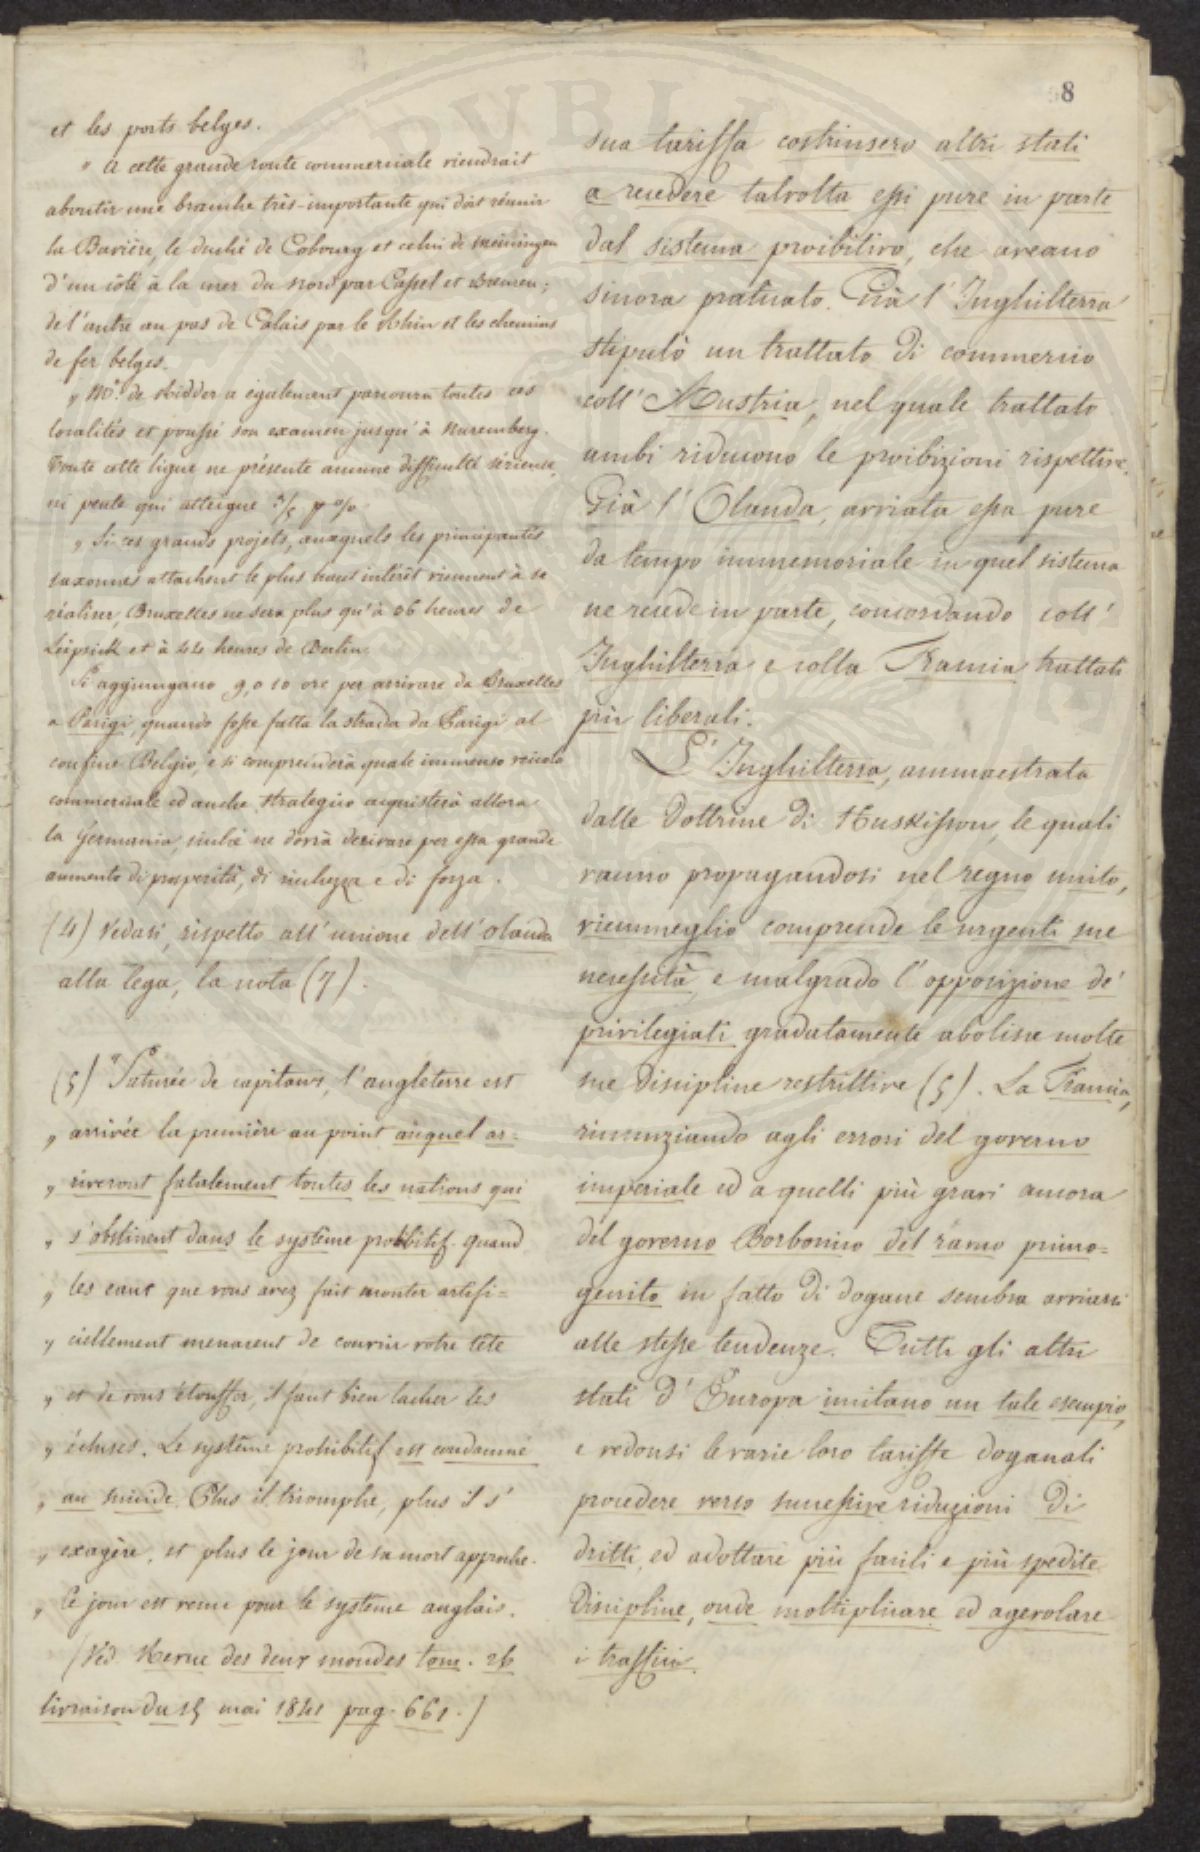 8
et les ports belges.
" A cette grande route commerciale viendrait
aboutir une branche très-importante qui doit réunir
la Bavière, le duché de Cobourg et celui de Meiningen
d'un côté à la mer du nord par Cassel et Bremen;
de l'autre au pas de Calais par le Rhin et les chemins
de fer belges.
" Mr. de Ridder a également parcouru toutes ces
localités et poussé son examen jusqu'à Nuremberg.
Toute cette ligne ne présente aucune difficulté sérieuse,
ni pente qui atteigne p %
" Si ces grands projets, auxquels les principautés
saxonnes attachent le plus haut intérêt viennent à se
réaliser, Bruxelles ne sera plus qu'à 36 heures de
Leipsick et à 44 heures de Berlin.
Si aggiungano 9, o 10 ore per arrivare da Bruxelles
a Parigi, quando fosse fatta la strada da Parigi al
confine Belgio, e si comprenderà quale immenso veicolo
commerciale ed anche strategico acquisterà allora
la Germania, sicché ne dovrà derivare per essa grande
aumento di prosperità, di richezza e di forza.
(4) Vedasi, rispetto all'unione dell'Olanda
alla lega, la nota (7).
(5) "Saturée de capitaux, l'angleterre est
„ arrivée la première au point auquel ar=
„ riveront fatalement toutes les nations qui
„ s'obstinent dans le système prohibitif. quand
„ les eaux que vous avez fait monter artifi=
„ ciellement menacent de couvrir votre tête
„ et de vous étouffer, il faut bien lacher les
„ écluses. Le système prohibitif est condamné
„ au suicide. Plus il triomphe, plus il s'
„ exagère, et plus le jour de sa mort approche.
„ Ce jour est venu pour le système anglais.
(Ved. Revue des deux mondes tom. 26
livraison du 15 mai 1841 pag. 661.)
sua tariffa costrinsero altri stati
a recedere talvolta essi pure in parte
dal sistema proibitivo, che aveano
sinora praticato. Già l'Inghilterra
stipulò un trattato di commercio
coll'Austria, nel quale trattato
ambi riducono le proibizioni rispettive.
Già l'Olanda, avviata essa pure
da tempo immemoriale in quel sistema
ne recede in parte, concordando coll'
Inghilterra e colla Francia trattati
più liberali.
L'Inghilterra, ammaestrata
dalle dottrine di Huskisson, le quali
vanno propagandosi nel regno unito,
viemmeglio comprende le urgenti sue
necessità, e malgrado l'opposizione de'
privilegiati gradatamente abolisce molte
sue discipline restrittive (5). La Francia,
rinunziando agli errori del governo
imperiale ed a quelli più gravi ancora
del governo Borbonico del ramo primo=
genito in fatto di dogane sembra avviarsi
alle stesse tendenze. Tutti gli altri
stati d'Europa imitano un tale esempio,
e vedonsi le varie loro tariffe doganali
procedere verso successive riduzioni di
dritti, ed adottare più facili e più spedite
discipline, onde moltiplicare ed agevolare
i traffici.